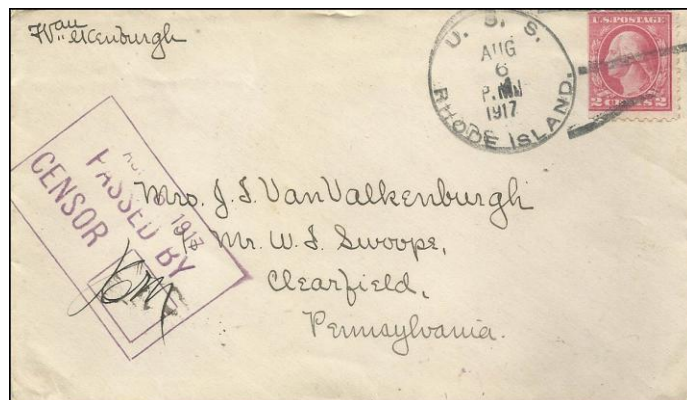 VanValkenburgh
U. S. S.
AUG
6
P.M.
1917
RHODE ISLAND.
U.S. POSTAGE
2 CENTS 2
1917
PASSED BY
CENSOR
Mrs. J. S. VanValkenburgh
Mr. W. S. Swoope,
Clearfield,
Pennsylvania.